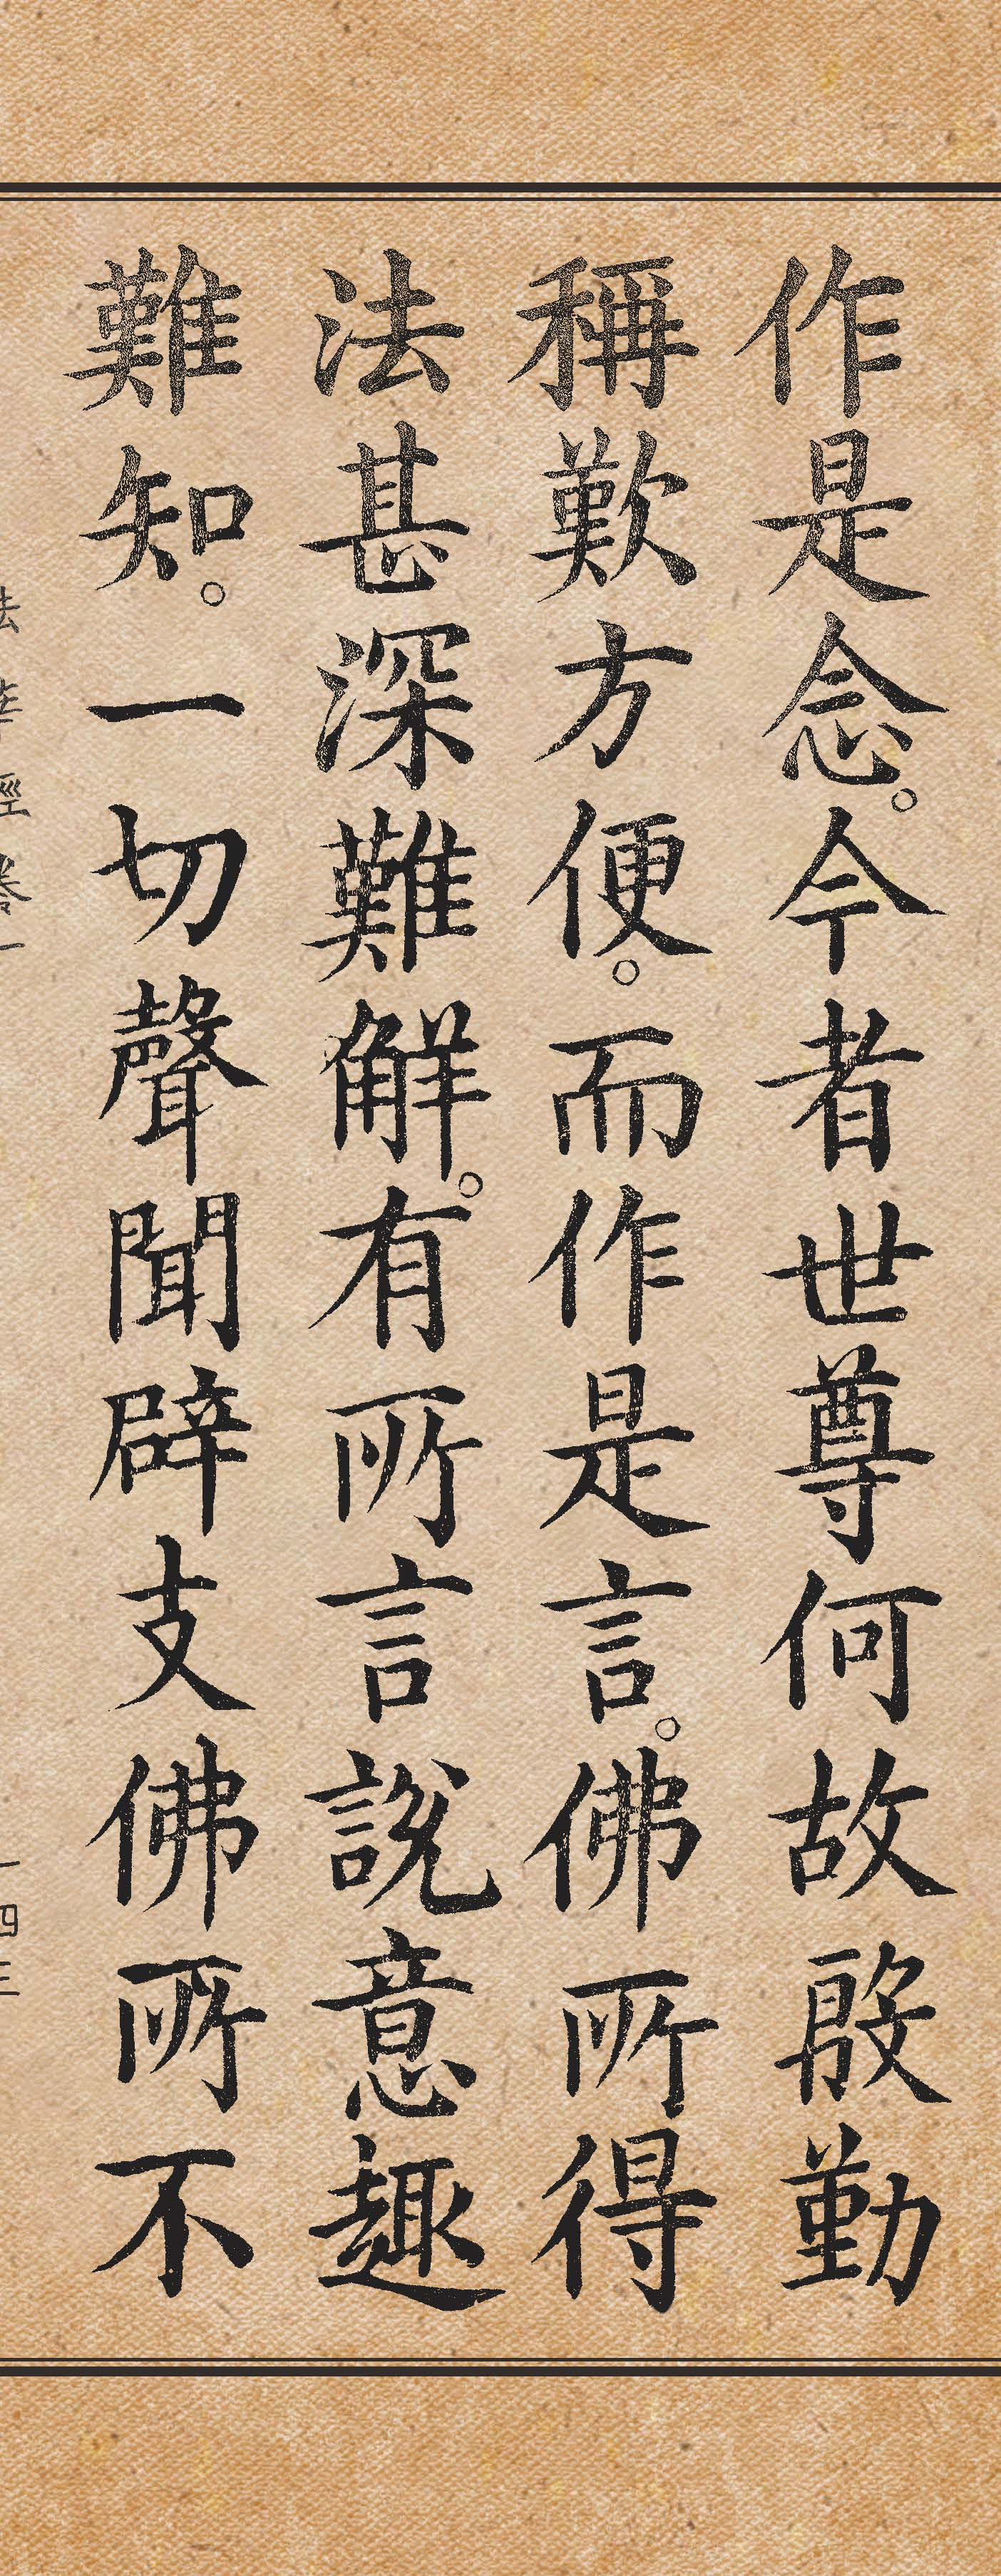 作是念。今者世尊何故殷勤
稱歎方便。而作是言。佛所得
法甚深難解。有所言說意趣
難知。一切聲聞辟支佛所不
法華經卷一
一四三